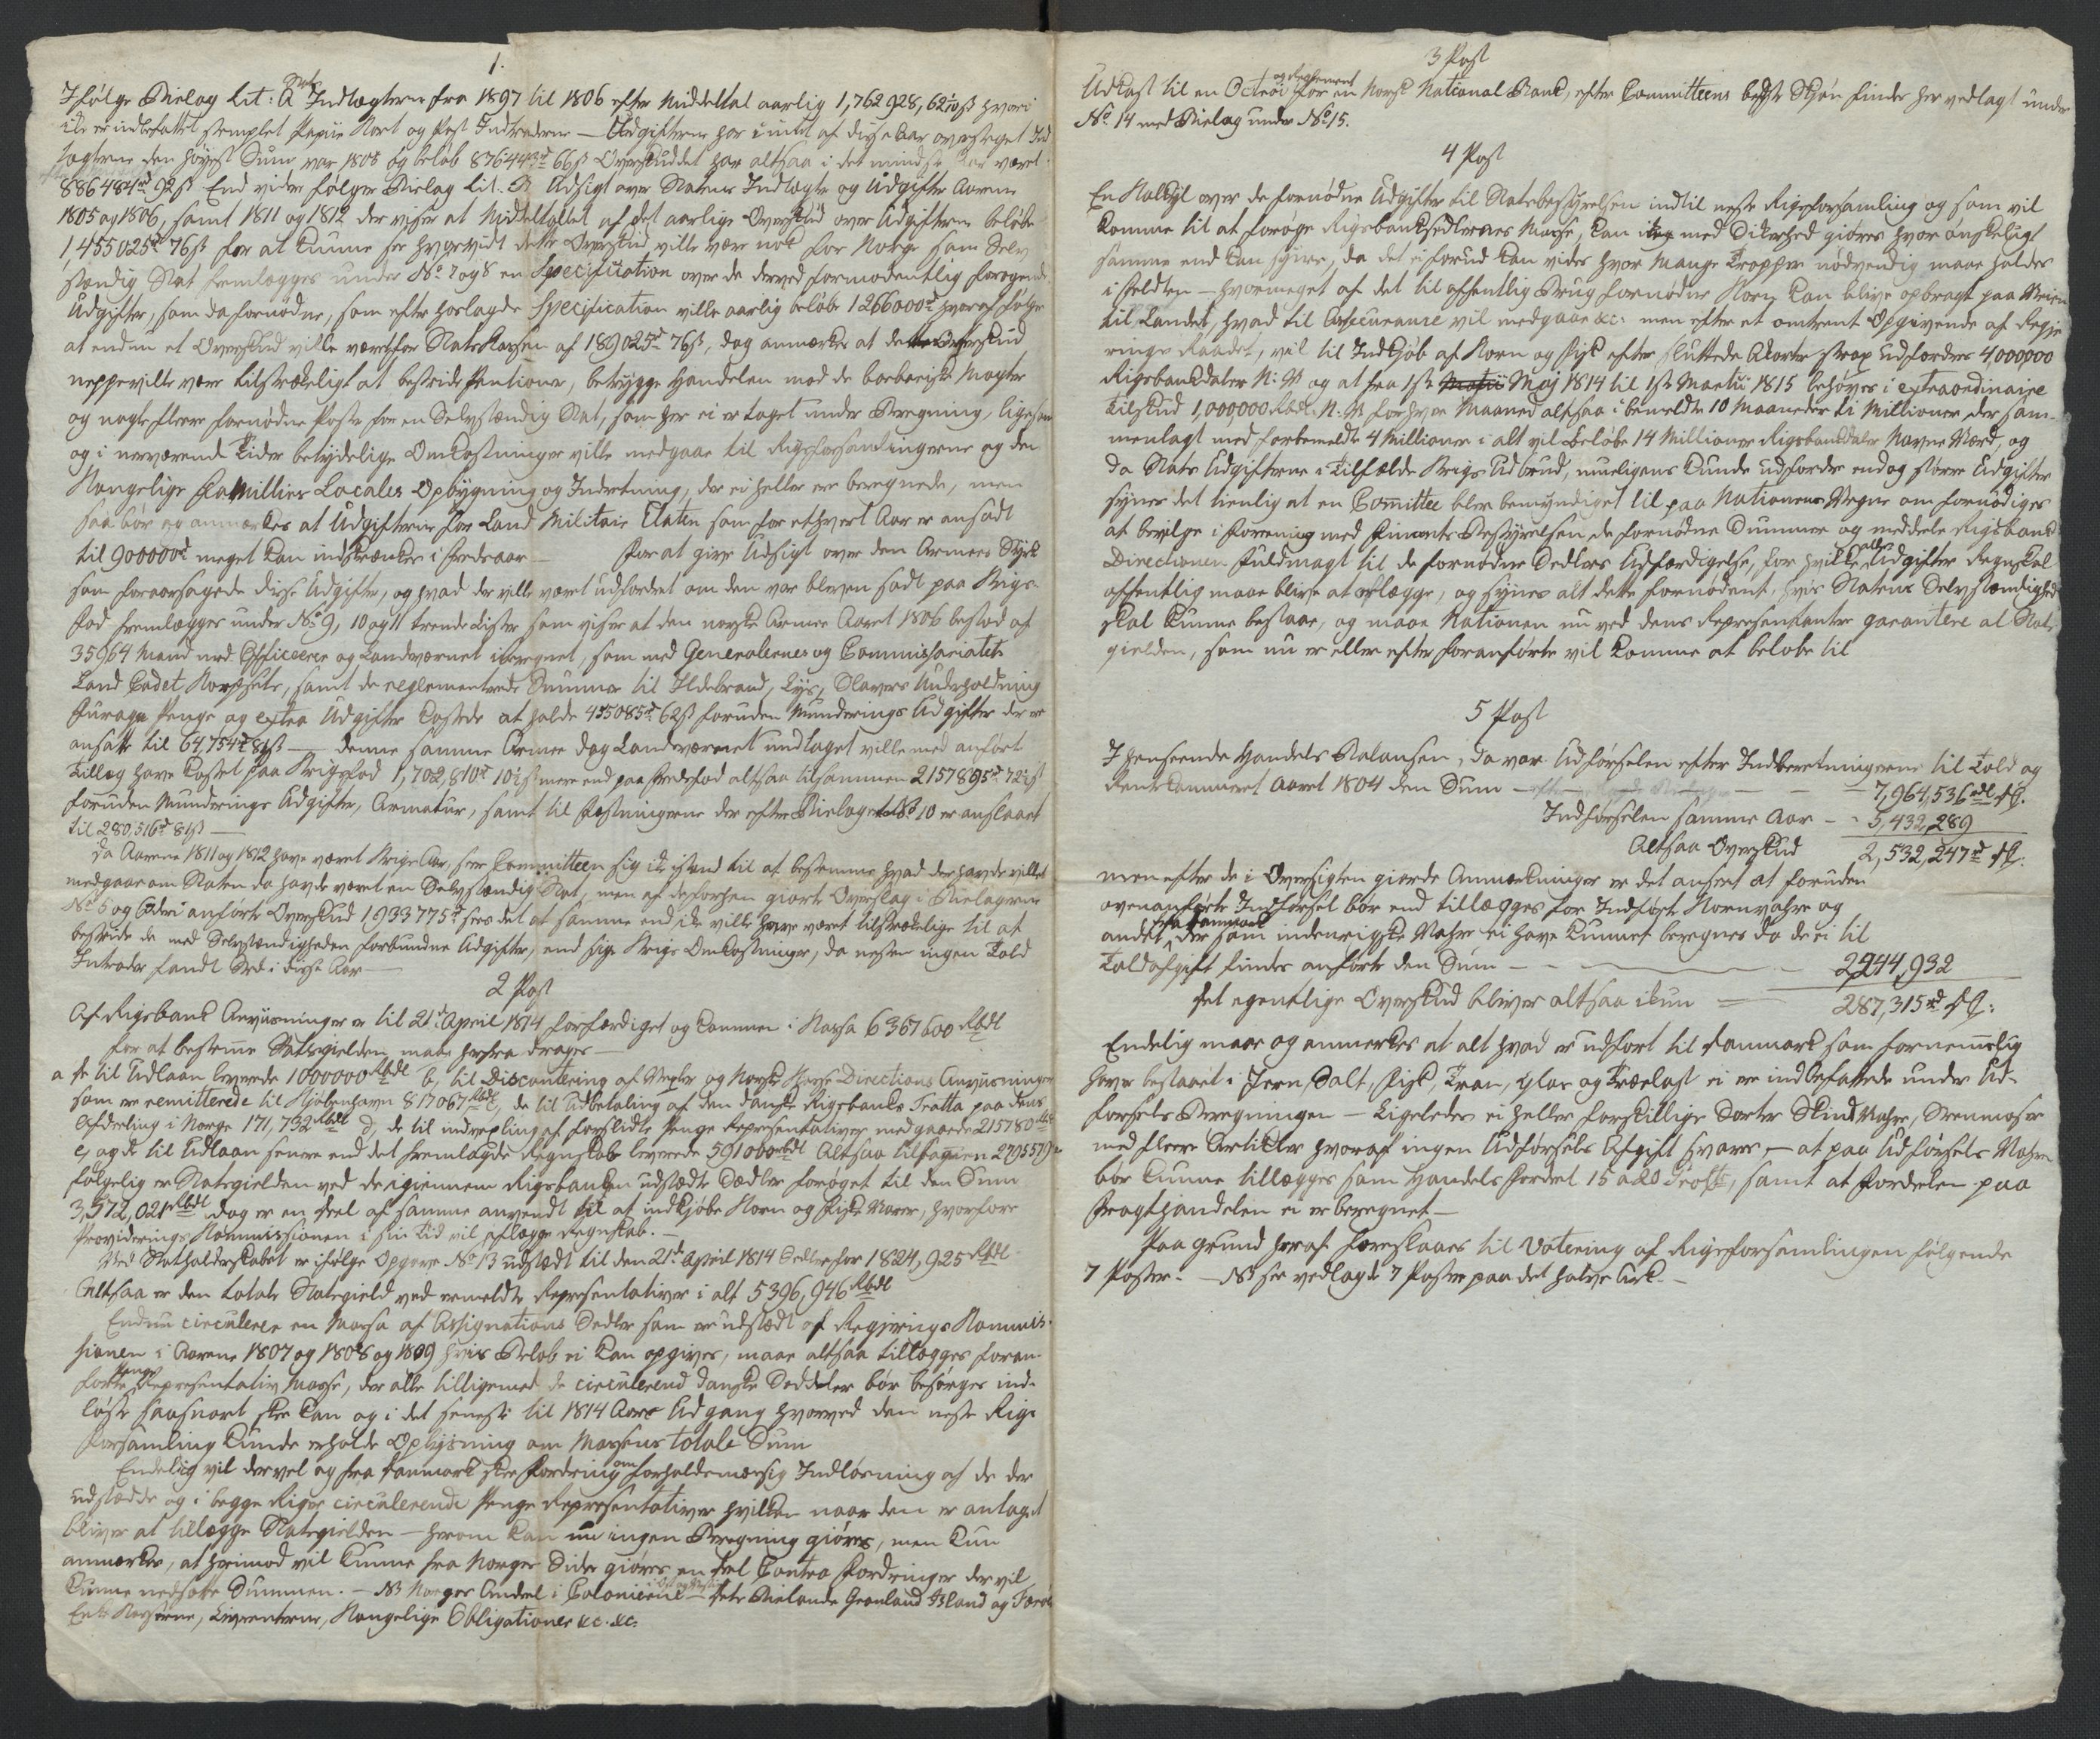 1.
Ifølge Bielag Lit: A Stats Indtægterne fra 1797 til 1806 efter Middeltal aarlig 1,762928, 62 1/10 ß hvori
ike er indbefattet stemplet Papiir Kort og Post Indtræderne — Udgifterne har i intet af disse Aar oversteget Ind
tægterne den høyeste Sum var 1806 og beløb 876443rd 66ß Overskuddet har altsaa i det mindste Aar været
886484rd 92ß End vider følger Bielag Lit. B Udsigt over Statens Indtægter og Udgifter Aarene
1805 og 1806, samt 1811 og 1812 der viser at Middeltallet af det aarlige Overskud over Udgifterne beløber
1,455025rd 76ß for at kunne see hvorvidt dette Overskud ville være nok for Norge som Selv
stændig Stat fremlægges under No 7 og 8 en Specification over de derved formodentlig forøgende
Udgifter, som da fornødne, som efter forlagde Specification ville aarlig beløbe 1266000rd hvoraf følger
at endnu et Overskud ville være for Stats Kassen af 189025rd 76ß, dog anmærkes at dette Overskud
neppe ville være tilstrækeligt at bestride Pentioner, betrygge Handelen mod de barbariske Magter
og nogle fleere fornødne Poster for en Selvstændig Stat, som her ei er taget under Beregning, ligesom
og i nærværende Tider betydelige Omkostninger ville medgaae til Rigsforsamlingerne og den
Kongelige Familiers Locales Opbygning og Indretning, der ei heller ere beregnede, men
saa bør og anmærkes at Udgifterne for Land Militair Etaten som for ethvert Aar er ansadt
til 900000rd meget kan indskrænkes i Fredsaar — For at give Udsigt over den Armees Styrke
som foraarsagede disse Udgifter, og hvad der ville været udfordret om den var bleven sadt paa Krigs-
fod fremlægges under No 9, 10 og 11 trende Lister som viser at den norske Armee Aaret 1806 bestod af
35964 Mand med Officerer og Landværnet iberegnet, som med Generalernes og Commissariatets
Land Cadet Korpsets, samt de reglementerede Summer til Ildebrand, Lys, Slavers Underholdning
Furage Penge og extra Udgifter kostede at holde 455085rd 62ß foruden Munderings Udgifter der er
ansatte til 64,754rd 81ß — denne samme Armee dog Landværnet undtaget ville med anført
Tillæg have kostet paa Krigsfod 1,702,810rd 10½ß mere end paa Fredsfod altsaa tilsammen 2157895rd 72½ß
foruden Munderings Udgifter, Armatur, samt til Fæstningerne der efter Bielaget No 10 er anslaaet
til 280,516rd 81ß —
Da Aarene 1811 og 1812 have været Krigs Aar, seer Committeen sig ike istand til at bestemme hvad der havde villet
medgaae om Staten da havde været en Selvstændig Stat, men af de forhen giorte Overslag i Bielagerne
No 5 og 6 deri anførte Overskud 1933775rd sees det at samme end ike ville have været tilstrækelige til at
bestride de med Selvstændigheden forbundne Udgifter, end sige Krigs Omkostninger, da næsten ingen Told
Intrader fandt Sted i disse Aar —
2 Post
Af Rigsbank Anviisninger er til 21d April 1814 forfærdiget og kommen i Massa 6367600 Rbdl
for at bestemme Statsgielden maae herfra drages —
a de til Udlaan leverede 1000000 Rbdl b, til Discontering af Vexler og Norske Børse Directions Anviisninger
som ere remitterede til Kjøbenhavn 817067 Rbdl c, de til Udbetaling af den danske Rigsbanks Tratta paa dens
Afdeeling i Norge 171,732 Rbdl d, de til indvexling af forslidte Penge Representativer medgaaede 215780 Rbdl
e, og de til Udlaan senere end det fremlagde Regnskab leverede 591000 Rbdl Altsaa tilsammen 2795579
følgelig er Statsgielden ved de igiennem Rigsbanken udstædte Sedler forøget til den Sum
3,572,021 Rbdl dog er en Deel af samme anvendt til at indkjøbe Korn og Fiske Varer, hvorfore
Provideerings Kommissionen i sin Tid vil aflægge Regnskab. —
Ved Statholderskabet er ifølge Opgave No 13 udstædt til den 21d April 1814 Sedler for 1824,925 Rbdl
Altsaa er den totale Statsgield ved anmeldte Representativer i alt 5396,946 Rbdl
Endnu circulerer en Massa af Assignations Sedler som er udstædt af Regierings Kommis-
sionen i Aarene 1807 og 1808 og 1809 hvis Beløb ei kan opgives, maae altsaa tillægges foran-
førte Penge Representativ Masse, der alle tilligemed de circulerend danske Seddeler bør besørges ind-
løste saasnart skee kan og i det seneste til 1814 Aars Udgang hvorved den neste Rigs
Forsamling kunde erholde Oplysning om Massens totale Sum
Endelig vil der vel og fra Danmark skee Fordring om forholdsmæssig Indløsning af de der
udstædde og i begge Riger circulerende Penge Representativer hvilken naar den er antaget
bliver at tillægge Statsgielden — herom kan nu ingen Beregning giøres, men kun
anmærkes, at herimod vil kunne fra Norges Side giøres en Deel Contra Fordringer der vil
kunne nedsætte Summen. — NB Norges Andeel i Colonierne i Ost og Vestindien — dets Bielande Grønland Island og Færøe
Enke Kasserne, Livrenterne, Kongelige Obligationer &c. &c.
3 Post
Udkast til en Octroi og Reglement for en Norsk National Bank, efter Committeens beste Skjøn findes her vedlagt under
No 14 med Bielag under No 15.
4 Post
En Kalkyl over de fornødne Udgifter til Statsbestyrelsen indtil neste Rigsforsamling og som vil
komme til at forøge Rigsbanksedlernes Masse, kan ikke med Sikerhed giøres hvor ønskeligt
samme end kan synes, da det ei forud kan vides hvor mange Tropper nødvendig maae holdes
i Feldten — hvormeget af det til offentlig Brug fornødne Korn kan blive opbragt paa Veien
til Landet, hvad til Assecurance vil medgaae &c: men efter et omtrent Opgivende af Regje
rings Raadet, vil til Indkjøb af Korn og Fisk efter sluttede Akorter strax udfordres 4,000000
Rigsbankdaler N: V og at fra 1ste Martii Maj 1814 til 1ste Martii 1815 behøves i extraordinaire
Tilskud 1,000,000 Rbdl: N: V for hver Maaned altsaa i bemeldte 10 Maaneder ti Millioner, der sam-
menlagt med forbemeldte 4 Millioner i alt vil beløbe 14 Millioner Rigsbankdaler Navne Værd, og
da Stats Udgifterne i Tilfælde Krigs Udbrud, mueligens kunde udfordre endog større Udgifter
synes det tienlig at en Committee blev bemyndiget til paa Nationens Vegne om fornødiges
at bevilge i Forening med Finants Bestyrelsen de fornødne Summer og meddele Rigsbank
Directionen Fuldmagt til de fornødne Sedlers Udfærdigelse, for hvilke alle Udgifter Regnskab
offentlig maae blive at aflægge, og synes alt dette fornødent, hvis Statens Selvstændighed
skal kunne bestaae, og maae Nationen nu ved dens Representanter garantere al Stats
gielden, som nu er eller efter foranførte vil komme at beløbe til
5 Post
I henseende Handels Balansen, da var Udførselen efter Indberetningerne til Told og
Rentekammeret Aaret 1804 den Sum — — — 7,964,536 rdl DC.
Indførselen samme Aar - - 5,432,289
Altsaa Overskud 2,532,247rd DC.
men efter de i Oversigten giorde Anmærkninger er det anført at foruden
ovenanførte Indførsel bør end tillægges for Indført Kornvahre og
andet fra Danmark der som indenrigske Vahre ei have kunnet beregnes da de ei til
Toldafgift findes anførte den Sum — — 2,244,932
det egentlige Overskud bliver altsaa ikun = 287,315rd DC:
Endelig maae og anmerkes at alt hvad er udført til Danmark som fornemmelig
haver bestaaet i Jern, Salt, Fisk, Tran, Glas og Trælast ei er indbefattede under Ud-
førsels Beregningen — Ligeledes ei heller forskillige Sorter Skind Vahre, Steenmoser
med fleere Artikler hvoraf ingen Udførsels Afgift svares — at paa Udførsels Vahre
bør kunne tillægges som Handels Fordeel 15 a 20 Procto, samt at Fordelen paa
Fragthandelen ei er beregnet —
Paa Grund heraf foreslaaes til Votering af Rigsforsamlingen følgende
7 Poster. — NB see vedlagde 7 Poster paa det halve Ark. —